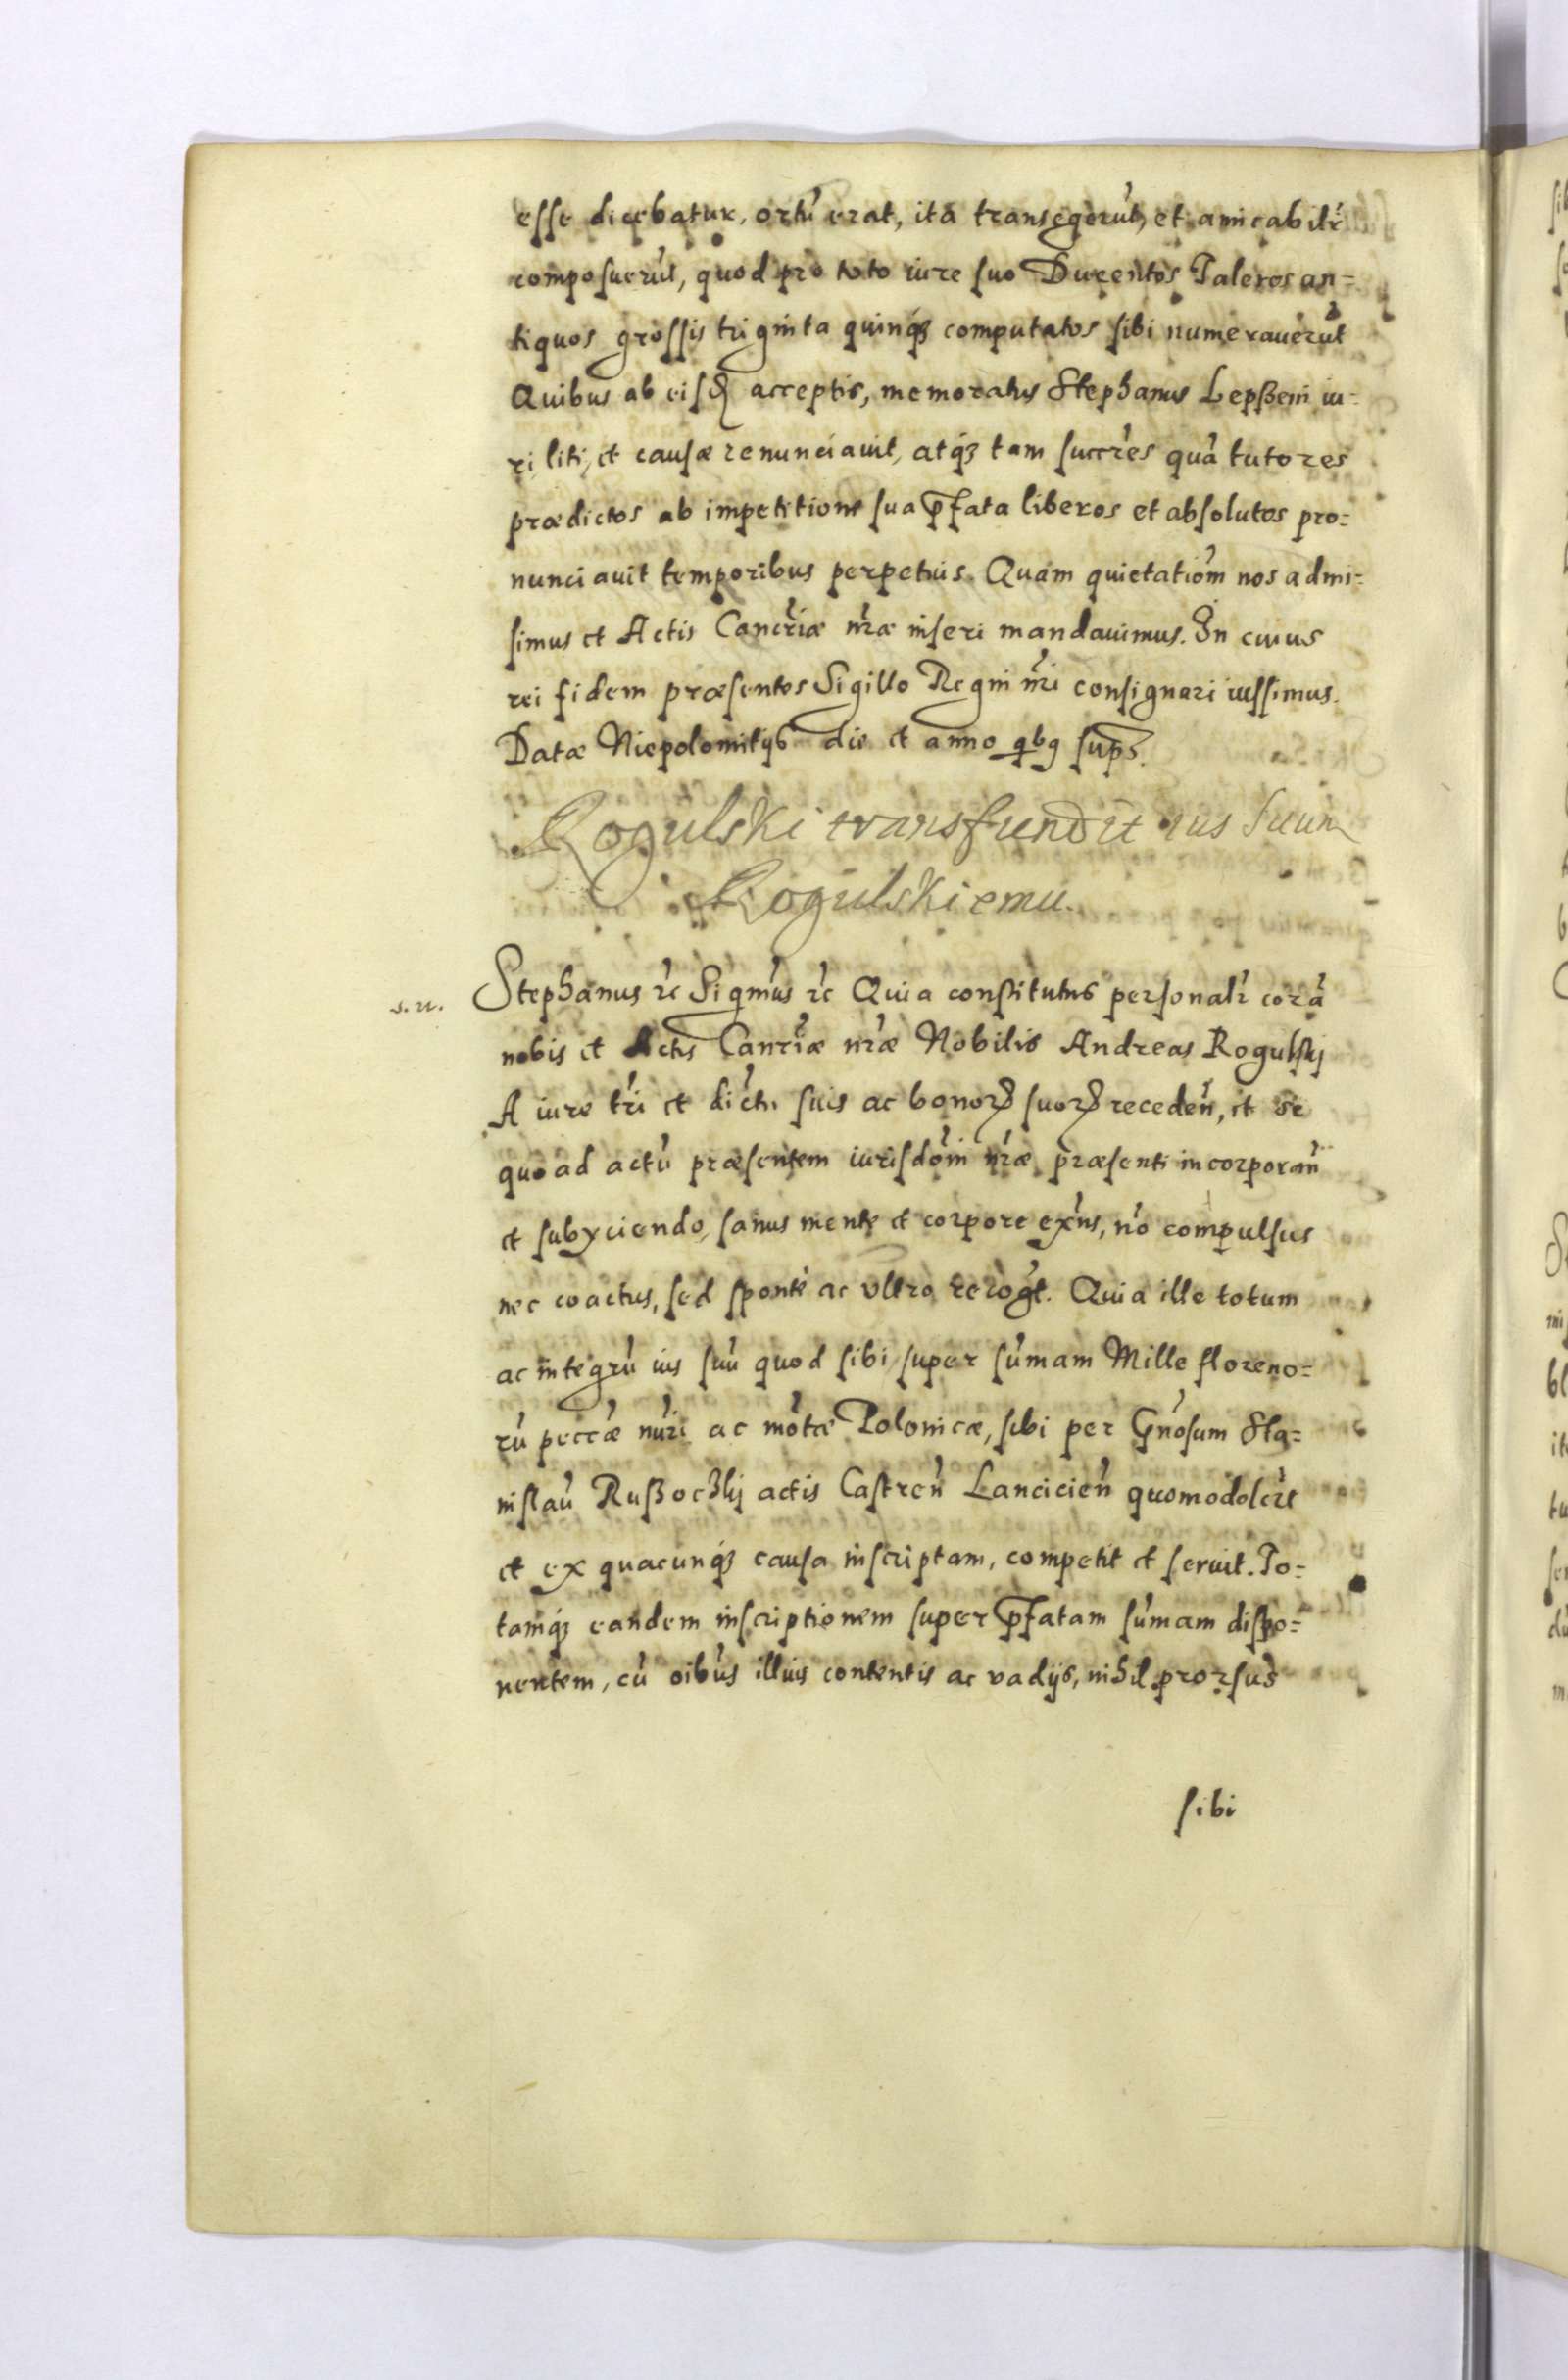 esse dicebatur, ortũ erat, ita transegerũt, et amicabilr̃
composuerũt, quod pro toto iure suo Ducentos Taleros an=
tiquos grossis triginta quinq₃ computatos sibi numerauerũt
Quibus ab eisd acceptis, memoratus Stephanus Lepßeni iu=
ri liti, et causæ renunciauit, atq₃ tam succr̃es quã tutores
prædictos ab impetitione sua p̃fata liberos et absolutos pro=
nunciauit temporibus perpetuis. Quam quietatiõm nos admi=
simus et Actis Cancr̃iæ nr̃æ inseri mandauimus. In cuius
rei fidem præsentes Sigillo Regni nr̃i consignari iussimus.
Datæ Niepolomitijs die et anno qbꝰ supˢ.
Rogulski transfundit ius suum
Rogulskiemu.
s. n. Stephanus rc̃ Sigm̃us rc̃ Quia constitutus personalr̃ corã
nobis et Actis Canc̃riæ nr̃æ Nobilis Andreas Rogulskj
A iure tr̃i et dic̃tu suis ac bonoꝝ suoꝝ recedeñ, et se
quo ad actũ præsentem iurisdõni nr̃æ præsenti incorporañ
et subyciendo, sanus mente et corpore exñs, nõ compulsus
nec coactus, sed sponte ac vltro recogt̃. Quia ille totum
ac integrũ ius suũ quod sibi super sum̃am Mille floreno=
rũ pecc̃æ nur̃i ac mõtæ Polonicæ, sibi per Gñosum Sta=
nislaũ Rußoczkj actis Castreñ Lancicieñ quomodolc̃t
et ex quacunq₃ causa inscriptam, competit et seruit. To=
tamq₃ eandem inscriptionem super p̃fatam sum̃am dispo=
nentem, cũ oibũs illius contentis ac vadijs, nihil prorsus
sibi